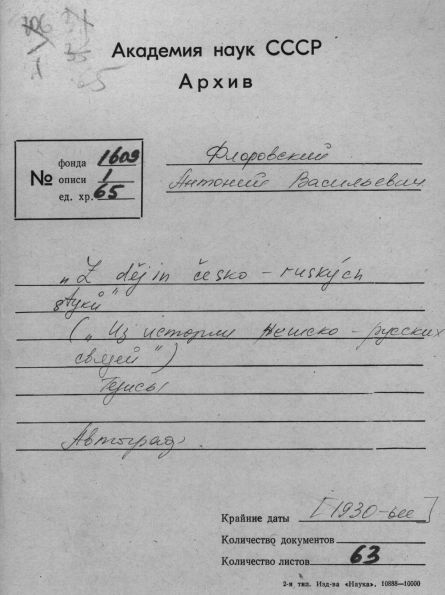 Академия наук СССР
Архив
№
фонда 1609
описи 1
ед. хр. 65
Флоровский
Антоний Васильевич
„Z dějin česko-ruských
styků"
(„Из истории чешско-русских
связей")
Тезисы
Автограф.
Крайние даты [1930-ые]
Количество документов
Количество листов 63
2-я тип. Изд-ва «Наука». 10888—10000